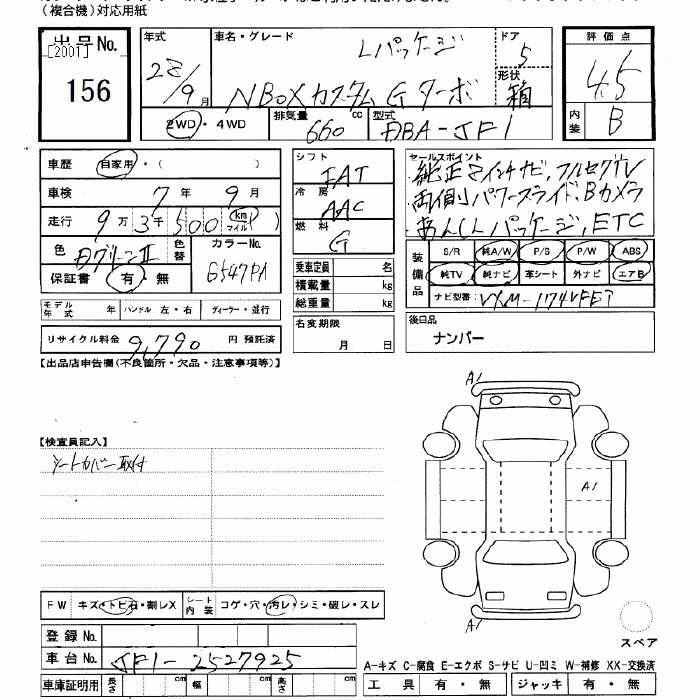 （複合機）対応用紙
出品No.
[2001]
156
年式
28/9月
車名・グレード
Lパッケージ
NBOXカスタム Gターボ
ドア
5
形状
箱
2WD・4WD
排気量
660 cc
型式
DBA-JF1
評価点
4.5
内装
B
車歴 自家用・( )
車検 7年 9月
走行 9万3千500 km マイル
色
色替
カラーNo.
G547P1
保証書 有・無
モデル年式 年 ハンドル 左・右 ディーラー・並行
リサイクル料金 9,790 円 預託済
シフト
FAT
冷房
AAC
燃料
G
乗車定員 名
積載量 kg
総重量 kg
名変期限
月 日
セールスポイント
純正8インチナビ、フルセグTV
両側パワースライド、Bカメラ
あんしんパッケージ、ETC
装備品
S/R 純A/W P/S P/W ABS
純TV 純ナビ 革シート 外ナビ エアB
ナビ型番: VXM-174VFEI
後日品
ナンバー
【出品店申告欄(不良箇所・欠品・注意事項等)】
【検査員記入】
シートカバー取付
A1
A1
A1
スペア
FW キズ・トビ石・割レX シート内装 コゲ・穴・汚レ・シミ・破レ・スレ
登録No.
車台No. JF1-2527925
車庫証明用 長さ cm 幅 cm 高さ cm
A-キズ C-腐食 E-エクボ S-サビ U-凹ミ W-補修 XX-交換済
工具 有・無 ジャッキ 有・無